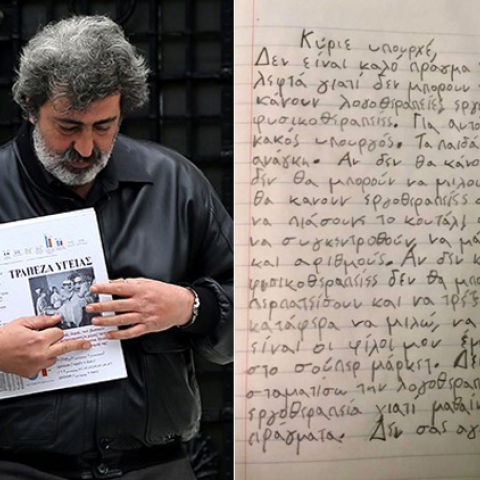 ΤΡΑΠΕΖΑ ΥΓΕΙΑΣ
Κύριε υπουρχέ,
Δεν είναι καλό πράγμα
λεφτά γιατί δεν μπορουν
κάνουν λογοθεραπείες, εργ
φυσικοθεραπείες. Για αυτό
κακός υπουργός. Τα παιδά
ανάγκη. Αν δεν θα κάνο
δεν θα μπορούν να μιλου
θα κανουν εργοθεραπείες
να πιάσουνε το κουτάλι
να συγκεντροθούν να μά
και αριθμούς. Αν δεν κ
φυσικοθεραπείες δεν θα μπο
περπατίσουν και να τρέξ
κατάφερα να μιλώ, να
είναι οι φίλοι μου
στο σούπερ μάρκετ. Δε
σταματίσω την λογοθεραπ
εργοθεραπεία γιατί μαθαίν
πράγματα. Δεν σας αγ